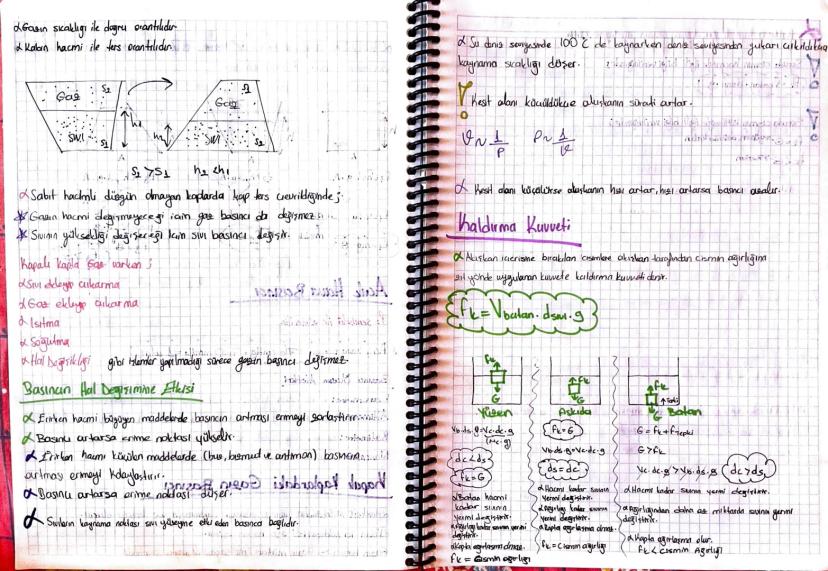 α Gazın sıcaklığı ile doğru orantılıdır.
α Kabın hacmi ile ters orantılıdır.
Gaz S2
Sıvı S1
h1
S1
Gaz
Sıvı S2
h2
S2 > S1 h2 < h1
α Sabit hacimli düzgün olmayan kaplarda kap ters çevrildiğinde;
* Gazın hacmi değişmeyeceği için gaz basıncı da değişmez.
* Sıvının yüksekliği değişeceği için sıvı basıncı değişir.
Kapalı kapta Gaz varken;
α Sıvı ekleyip çıkarma
α Gaz ekleyip çıkarma
α Isıtma
α Soğutma
α Hal Değişikliği gibi işlemler yapılmadığı sürece gazın basıncı değişmez.
Basıncın Hal Değişimine Etkisi
α Erirken hacmi büyüyen maddelerde basıncın artması erimeyi zorlaştırır.
α Basınç artarsa erime noktası yükselir.
α Erirken hacmi küçülen maddelerde (buz, bizmut ve antimon) basıncın
artması erimeyi kolaylaştırır.
α Basınç artarsa erime noktası düşer.
α Sıvıların kaynama noktası sıvı yüzeyine etki eden basınca bağlıdır.
α Su deniz seviyesinde 100°C de kaynarken deniz seviyesinden yukarı çıkıldıkça
kaynama sıcaklığı düşer.
! Kesit alanı küçüldükçe akışkanın sürati artar.
ϑ ~ 1/P P ~ 1/ϑ
α Kesit alanı küçülürse akışkanın hızı artar, hızı artarsa basıncı azalır.
Kaldırma Kuvveti
α Akışkan içerisine bırakılan cisimlere akışkan tarafından cismin ağırlığına
zıt yönde uygulanan kuvvete kaldırma kuvveti denir.
Fk = Vbatan . dsıvı . g
Fk
G
Yüzen
Vb.ds.g = Vc.dc.g
(mc.g)
dc < ds
Fk = G
α Batan hacmi
kadar sıvının
yerini değiştirir.
α Ağırlığı kadar sıvının yerini
değiştirir.
α Kapta ağırlaşma olmaz.
Fk = Cismin ağırlığı
Fk
G
Askıda
Fk = G
Vb.ds.g = Vc.dc.g
ds = dc
α Hacmi kadar sıvının
yerini değiştirir.
α Ağırlığı kadar sıvının
yerini değiştirir.
α Kapta ağırlaşma olmaz.
Fk = Cismin ağırlığı
Fk
G
Batan
G = Fk + Ftepki
G > Fk
Vc.dc.g > Vb.ds.g dc > ds
α Hacmi kadar sıvının yerini değiştirir.
α Ağırlığından daha az miktarda sıvının yerini
değiştirir.
α Kapta ağırlaşma olur.
Fk < Cismin Ağırlığı